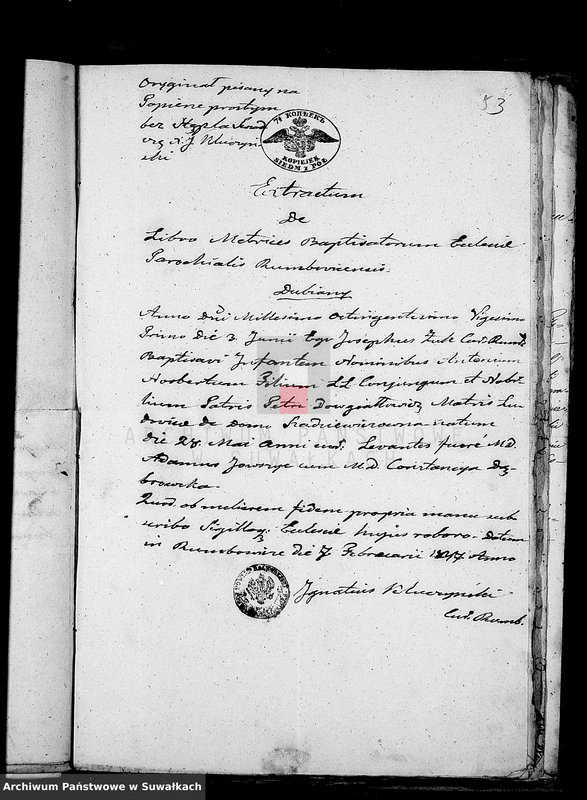 Oryginał pisany na
Papierze prostym
bez
53
7½ КОПѢЕКЪ
KOPIEJEK
SIEDM I PÓŁ
Extractum
De
Libro Metrices Baptisatorum Eclesiæ
Parochialis Rumbovicensis.
Dubiany
Anno Dni Millesimo Octingentesimo Vigesimo
Primo die 3 Junii Ego Josephus Żuk Cur. Rumb.
Baptisavi Infantem Nominibus Antonium
Norbertum Filium LL Conjugum et Nobi-
lium Patris Petri Dowgiałłowicz Matris Lu-
dovicæ de Domo natum
die 28 Mai Anni eod. Levantes fuere M.D.
Adamus Jaworze cum M.D. Constancya Dą-
browska.
Quod ob meliorem fidem propria manu sub-
scribo Sigilloq. Eclesiæ hujus roboro. Datum
in Rumbowice die 7 Februarii 1847 Anno
Ignatius Kluczyński
Cur. Rumb.
ARCHIWUM PAŃSTWOWE
W SUWAŁKACH
Archiwum Państwowe w Suwałkach